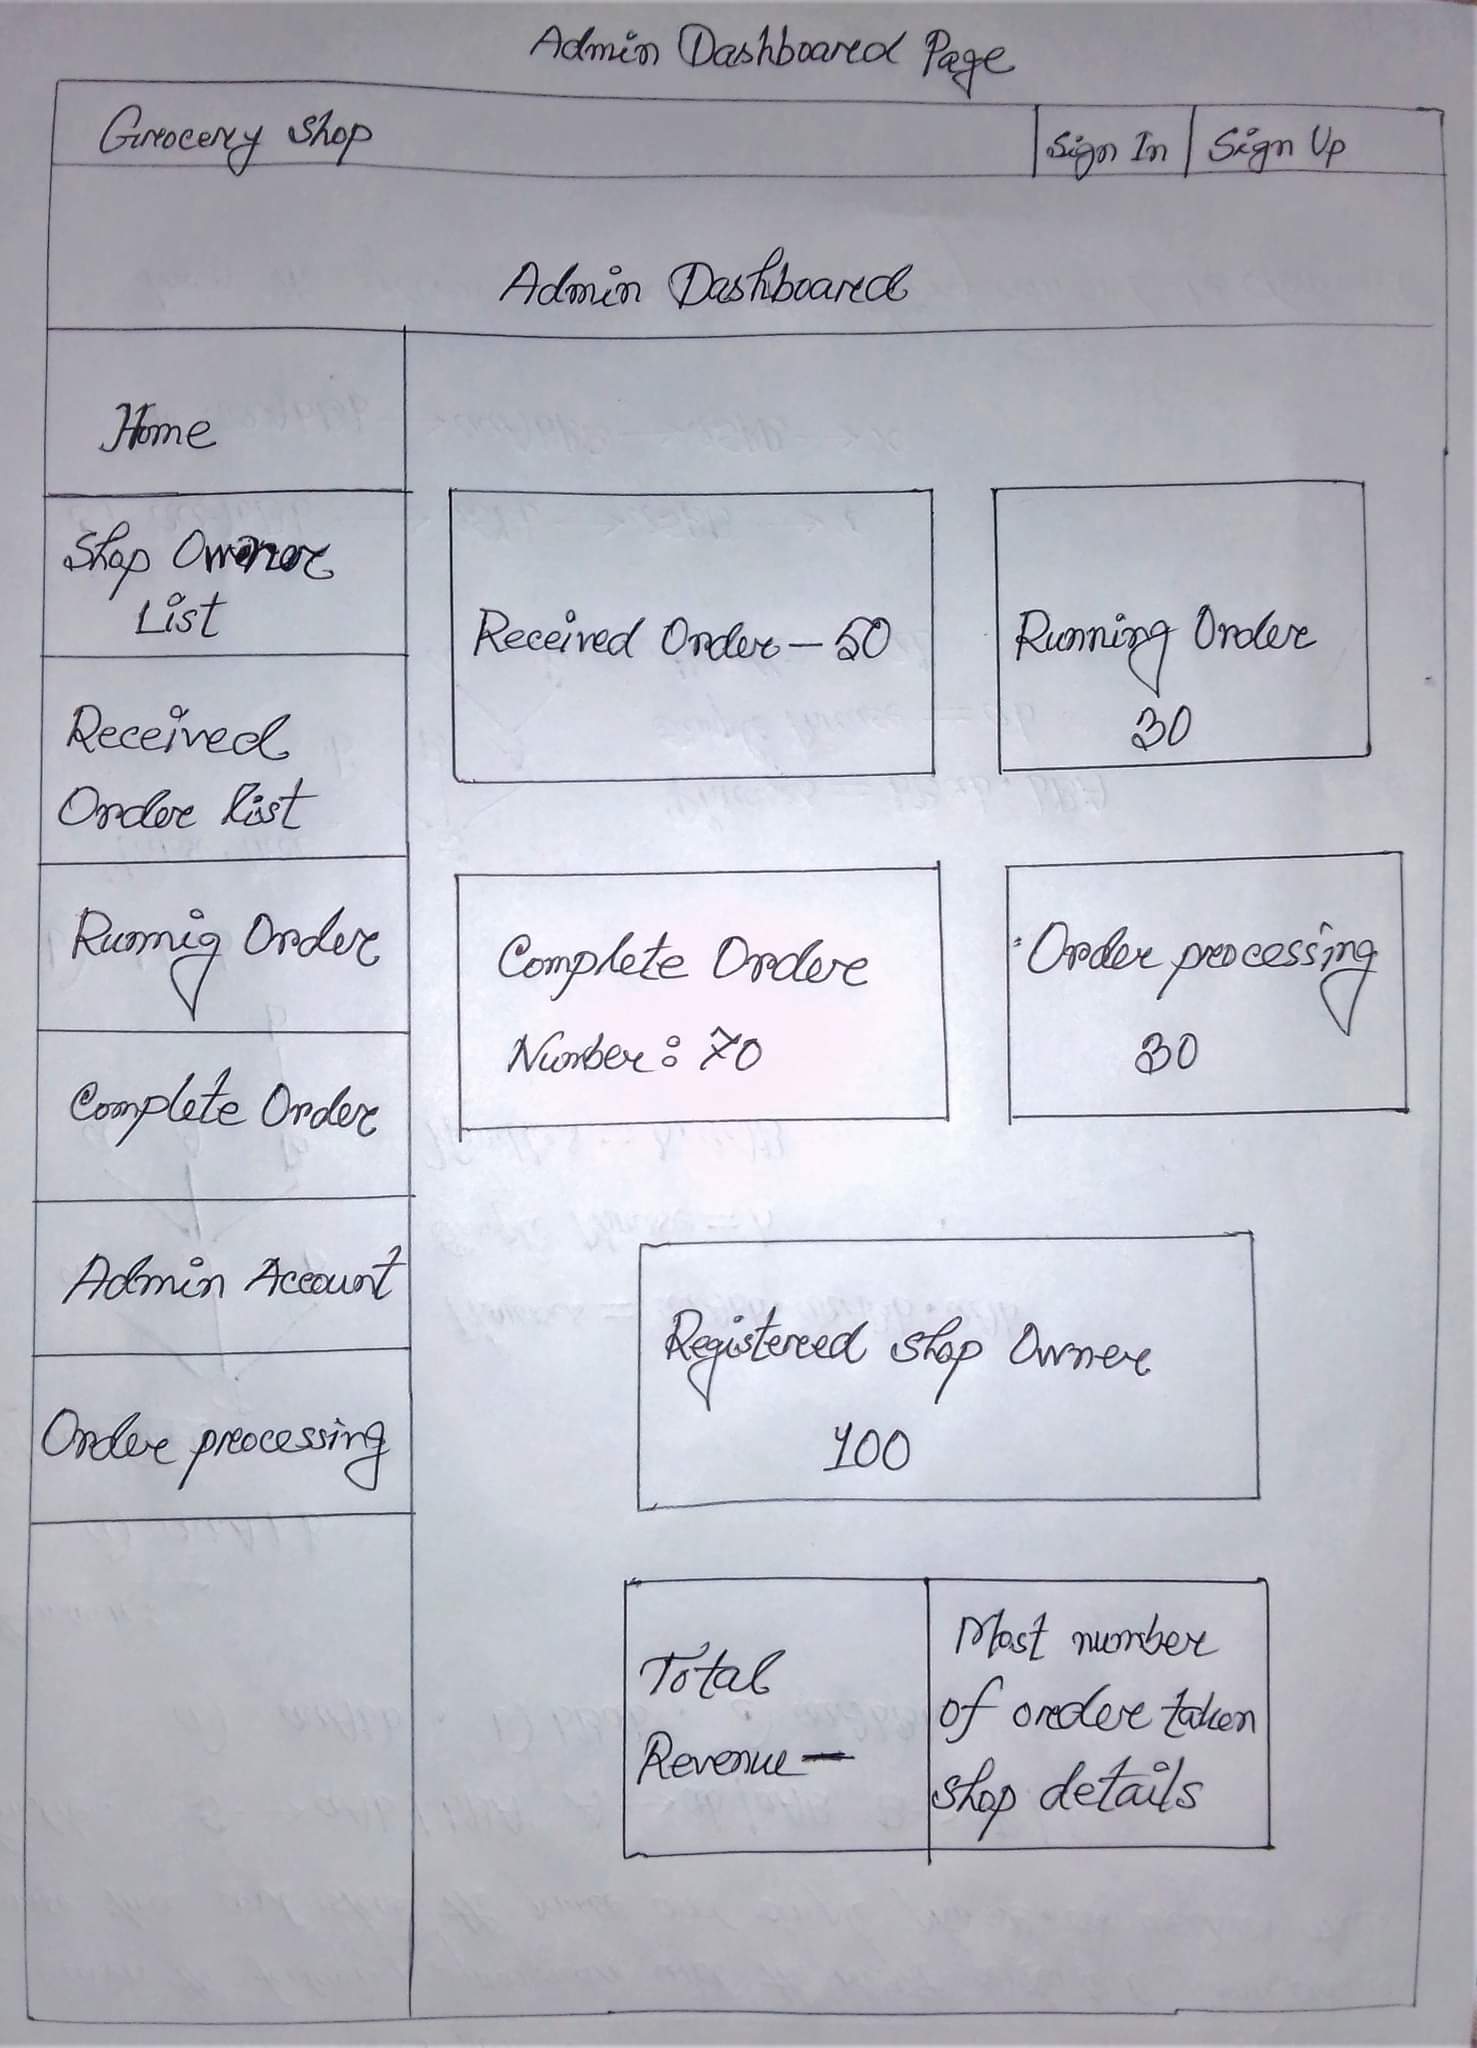 Admin Dashboared Page
Grocery Shop
Sign In
Sign Up
Admin Dashboared
Home
Shop Owner
List
Received
Order List
Runnig Order
Complete Order
Admin Account
Order processing
Received Order - 50
Running Order
30
Complete Order
Number: 70
Order processing
30
Registered Shop Owner
100
Total
Revenue -
Most number
of order taken
shop details